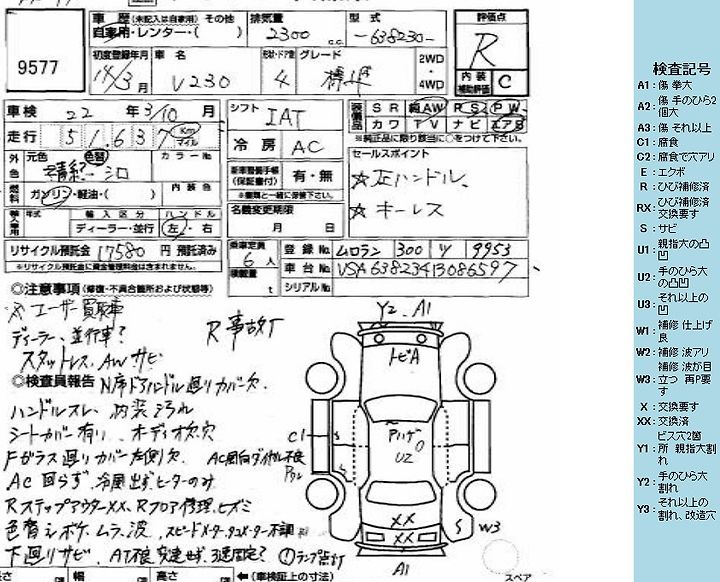 9577
車歴 (未記入は自家用) その他
自家用・レンター・( )
排気量
2300 c.c.
型式
-638230-
評価点
R
内装補助評価 C
初度登録年月
14/3月
車名
V230
形状・ドア数
4
グレード
2WD
・
4WD
車検 22 年 3/10 月
走行 51,637 Km マイル
シフト
IAT
冷房 AC
装備品
SR 純AW PS PW
カワ TV ナビ エアB
※純正品に限り該当に○をつけて下さい。
外色 元色 色替 カラーNo.
燃料 ガソリン・軽油・( ) 内装色
新車整備手帳(保証書付) 有・無
※書類と一緒に保管下さい。
セールスポイント
☆正ハンドル、
☆キーレス
輸入車用 年式 輸入区分 ハンドル
ディーラー・並行 左・右
名義変更期限
月 日
リサイクル預託金 17580 円 預託済み
※リサイクル預託金に資金管理料金は含まれません。
乗車定員 6 人
積載量 t
登録No. ムロラン 300 ツ 9953
車台No. VSA63823413086597
シリアルNo.
◎注意事項 (修復・不具合箇所および状態等)
☆ユーザー買取車
ディーラー、並行車?
R事故T
スタットレス、AWサビ
◎検査員報告 N席ドアハンドル廻りカバー欠
ハンドルスレ、内装汚れ
シートカバー有り、オーディオ欠、穴
Fガラス廻りカバー左側欠
AC風向ダイヤル不良
AC回らず、冷風出ず、ヒーターのみ
RステップアウターXX、Rフロア修理、ヒズミ
色替シボケ、ムラ、波、スピードメーター、タコメーター不調
下廻りサビ、AT不良
ランプ点灯
Y2、A1
トビA
C1
U2
XX
XX
S
W3
A1
スペア
幅
高さ
←(車検証上の寸法)
検査記号
A1:傷 拳大
A2:傷 手のひら2個大
A3:傷 それ以上
C1:腐食
C2:腐食で穴アリ
E:エクボ
R:ひび補修済
RX:ひび補修済 交換要す
S:サビ
U1:親指大の凸凹
U2:手のひら大の凸凹
U3:それ以上の凹
W1:補修 仕上げ良
W2:補修 波アリ
W3:補修 波が目立つ 再P要す
X:交換要す
XX:交換済
Y1:ビス穴2箇所 親指大割れ
Y2:手のひら大割れ
Y3:それ以上の割れ、改造穴